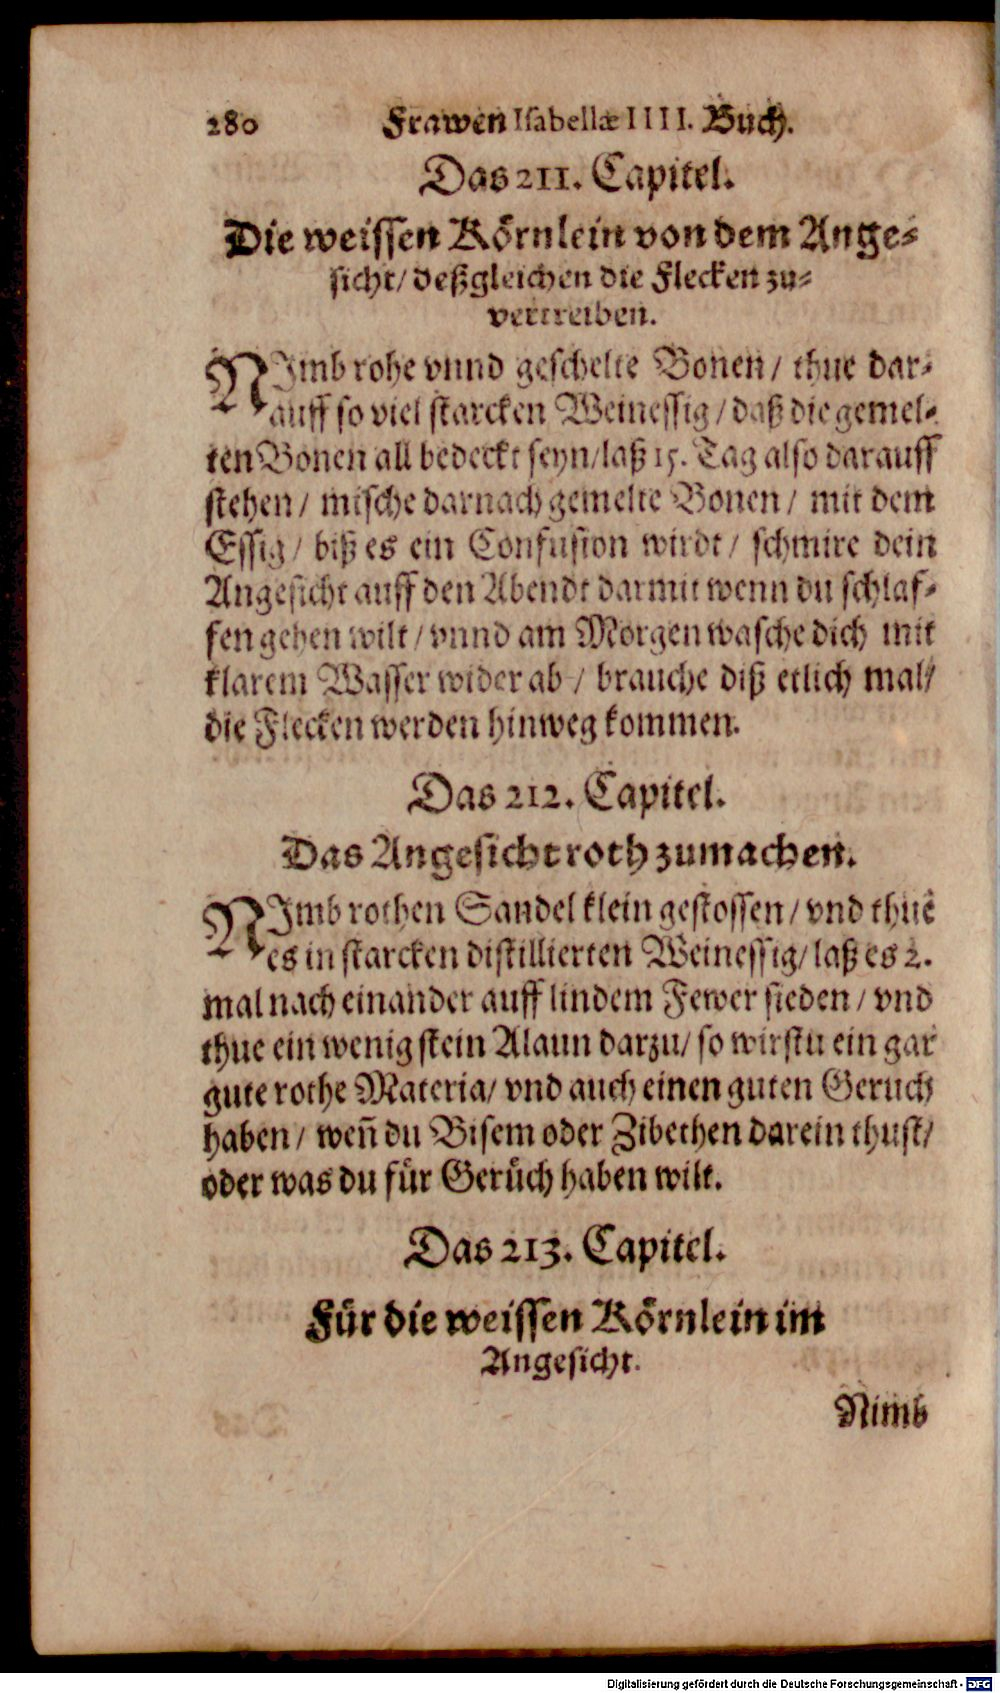 280 Frawen Isabellæ IIII. Buch.
Das 211. Capitel.
Die weissen Körnlein von dem Ange-
sicht/ deßgleichen die Flecken zu-
vertreiben.
NImb rohe vnnd geschelte Bonen/ thue dar-
auff so viel starcken Weinessig/ daß die gemel-
ten Bonen all bedeckt seyn/ laß 15. Tag also darauff
stehen/ mische darnach gemelte Bonen/ mit dem
Essig/ biß es ein Confusion wirdt/ schmire dein
Angesicht auff den Abendt darmit wenn du schlaf-
fen gehen wilt/ vnnd am Morgen wasche dich mit
klarem Wasser wider ab/ brauche diß etlich mal/
die Flecken werden hinweg kommen.
Das 212. Capitel.
Das Angesicht roth zumachen.
NImb rothen Sandel klein gestossen/ vnd thue
es in starcken distillierten Weinessig/ laß es 2.
mal nach einander auff lindem Fewer sieden/ vnd
thue ein wenig stein Alaun darzu/ so wirstu ein gar
gute rothe Materia/ vnd auch einen guten Geruch
haben/ weñ du Bisem oder Zibethen darein thust/
oder was du für Gerüch haben wilt.
Das 213. Capitel.
Für die weissen Körnlein im
Angesicht.
Nimb
Digitalisierung gefördert durch die Deutsche Forschungsgemeinschaft - DFG